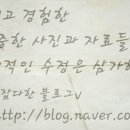 고 경험한
중한 사진과 자료들
적인 수정은 삼가
잡다한 블로그v
http://blog.naver.co